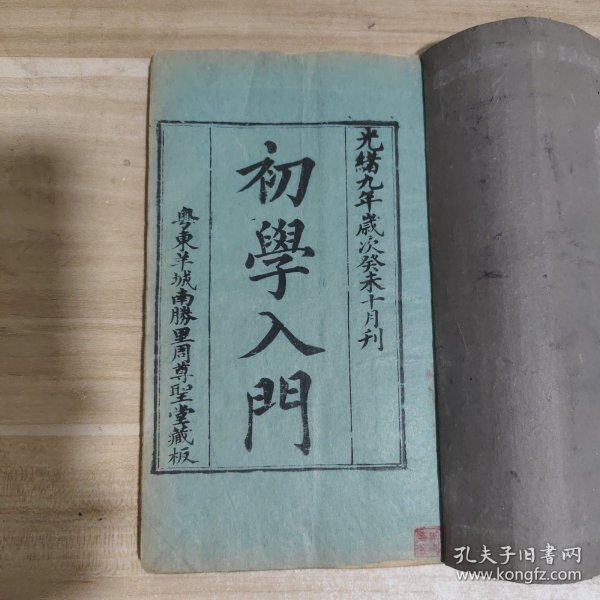 光緒九年歲次癸未十月刊
初學入門
粵東羊城南勝里周尊聖堂藏板
孔夫子旧书网
www.kongfz.com